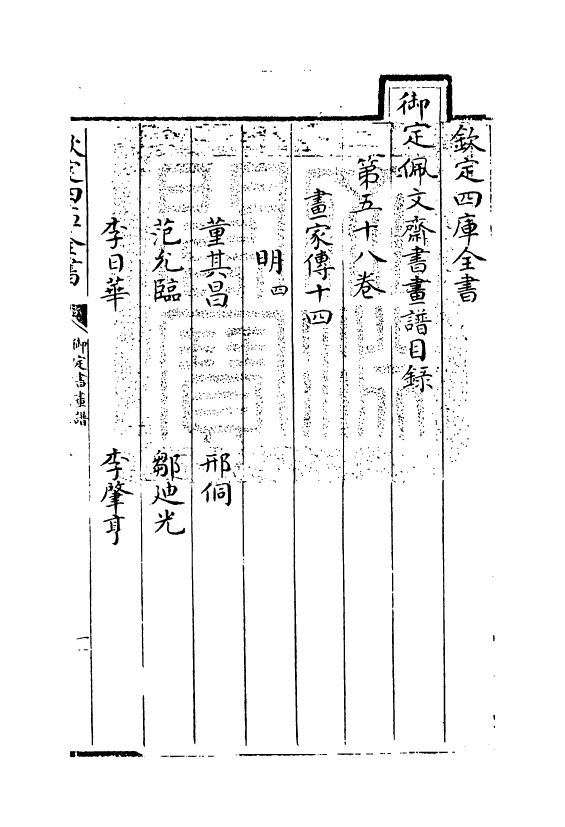 欽定四庫全書
御定佩文齋書畫譜目錄
第五十八卷
畫家傳十四
明四
董其昌 邢侗
范允臨 鄒迪光
李日華 李肇亨
欽定四庫全書
御定書畫譜
一